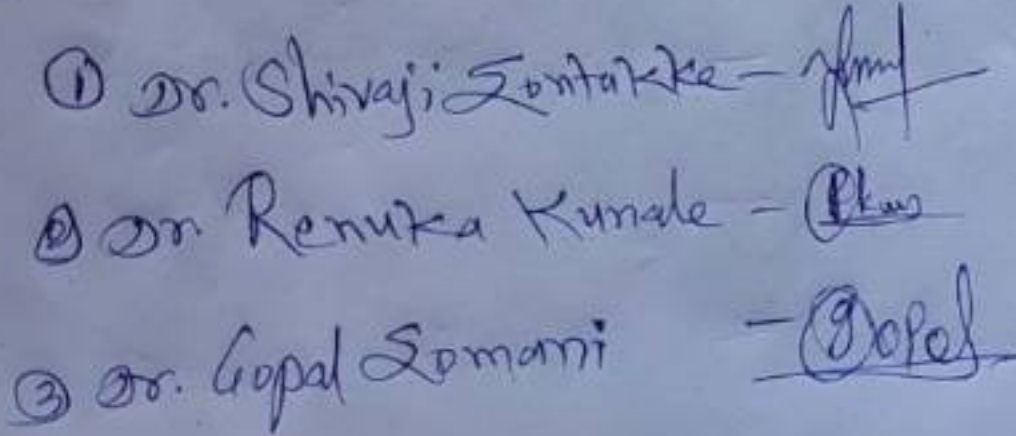 ① Dr. Shivaji Sontakke -
② Dr Renuka Kunale -
③ Dr. Gopal Somani - Gopal